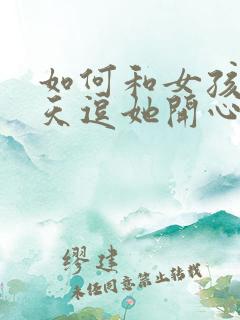 如何和女孩
天逗她开心
缪建
未经同意禁止转载